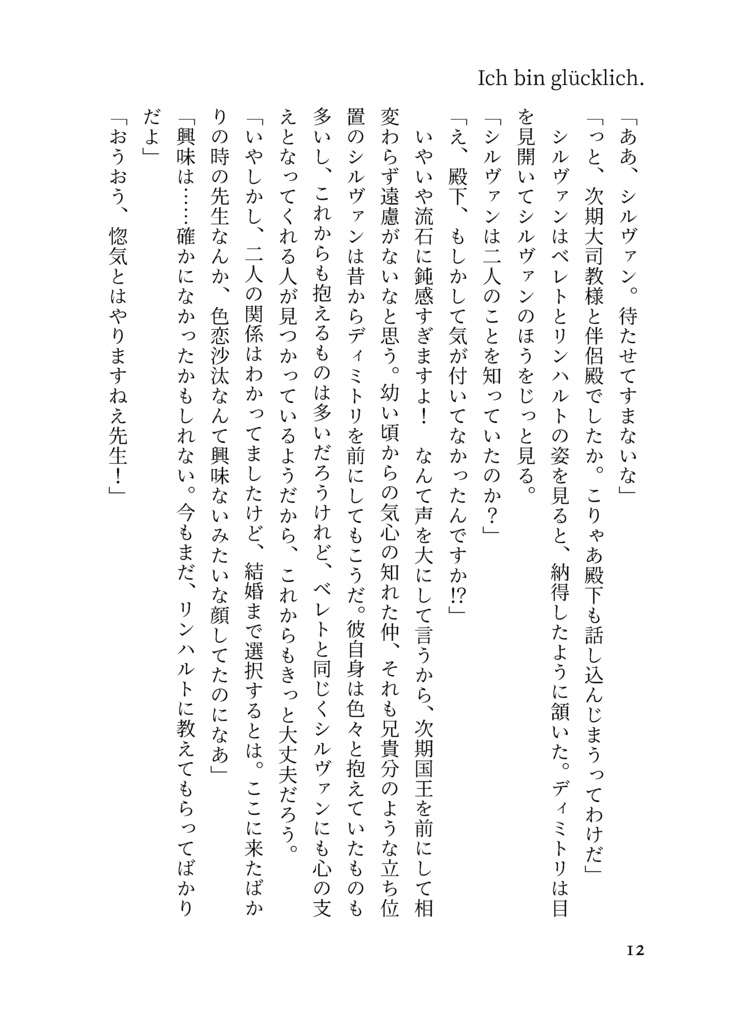 Ich bin glücklich.
「ああ、シルヴァン。待たせてすまないな」
「っと、次期大司教様と伴侶殿でしたか。こりゃあ殿下も話し込んじまうってわけだ」
　シルヴァンはベレトとリンハルトの姿を見ると、納得したように頷いた。ディミトリは目
を見開いてシルヴァンのほうをじっと見る。
「シルヴァンは二人のことを知っていたのか？」
「え、殿下、もしかして気が付いてなかったんですか⁉」
　いやいや流石に鈍感すぎますよ！　なんて声を大にして言うから、次期国王を前にして相
変わらず遠慮がないなと思う。幼い頃からの気心の知れた仲、それも兄貴分のような立ち位
置のシルヴァンは昔からディミトリを前にしてもこうだ。彼自身は色々と抱えていたものも
多いし、これからも抱えるものは多いだろうけれど、ベレトと同じくシルヴァンにも心の支
えとなってくれる人が見つかっているようだから、これからもきっと大丈夫だろう。
「いやしかし、二人の関係はわかってましたけど、結婚まで選択するとは。ここに来たばか
りの時の先生なんか、色恋沙汰なんて興味ないみたいな顔してたのになあ」
「興味は……確かになかったかもしれない。今もまだ、リンハルトに教えてもらってばかり
だよ」
「おうおう、惚気とはやりますねえ先生！」
12